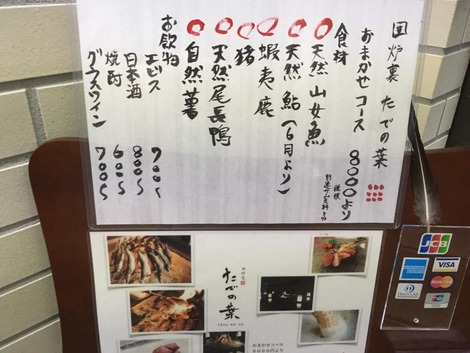 囲炉裏 たでの葉
おまかせコース 8000より
税抜
食材
天然 山女魚
天然 鮎(6月より)
蝦夷鹿
猪
天然 尾長鴨
自然薯
お飲物
エビス 700〜
日本酒 800〜
焼酎 600〜
グラスワイン 700〜
たでの葉
おまかせコース
8000円より
JCB
VISA